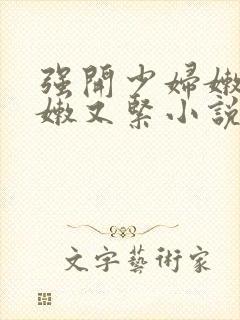 强開少婦嫩
嫩又緊小説
文字藝術家